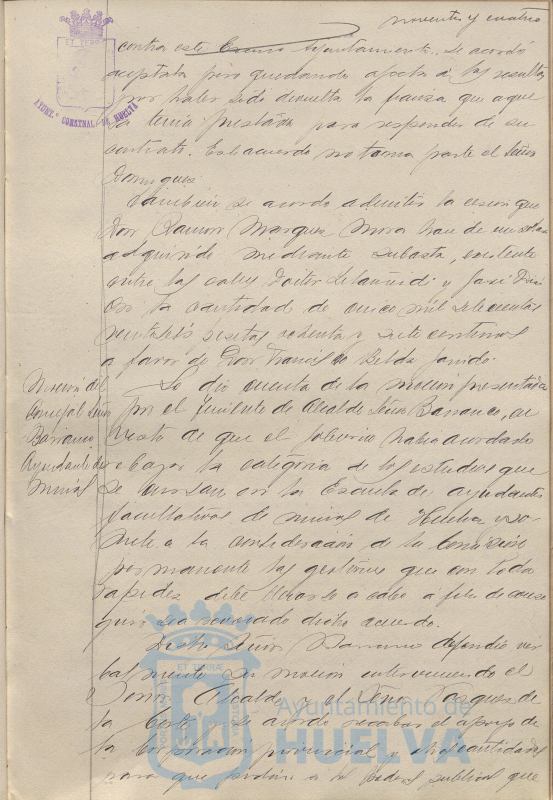 noventa y cuatro
contra este Excmo Ayuntamiento. Se acordó
aceptarla pero quedando afecta a las resultas
por haber sido devuelta la fianza que aque
lla tenía prestada para responder de su
contrato. En el acuerdo no toma parte el Señor
Dominguez.
También se acordó admitir la cesión que
Don Ramon Marquez Mora hace de un solar
adquirido mediante subasta, existente
entre las calles Doctor y José
En la cantidad de cinco mil setecientas
pesetas ochenta y siete centimos
a favor de Don Francisco Belda
Moción del
concejal Señor
Barranco
Ayudante de
Minas
Se dio cuenta de la moción presentada
por el Teniente de Alcalde Señor Barranco, en
vista de que el Gobierno había acordado
rebajar la categoría de los estudios que
se cursan en la Escuela de ayudantes
facultativos de minas de Huelva y so-
mete a la consideración de la Comisión
permanente las gestiones que con toda
rapidez debe llevarse a cabo a fin de conse
guir sea revocado dicho acuerdo.
Dicho Señor Barranco defendió ver
balmente su moción interviniendo el
Señor Alcalde y el Señor Vazquez de
la Corte y se acordó recabar el apoyo de
la Corporación provincial y otras entidades
para que pidan a los poderes publicos que
ET TERRÆ
AYUNT.º CONSTNAL. DE HUELVA
ET TERRÆ
Ayuntamiento de
HUELVA